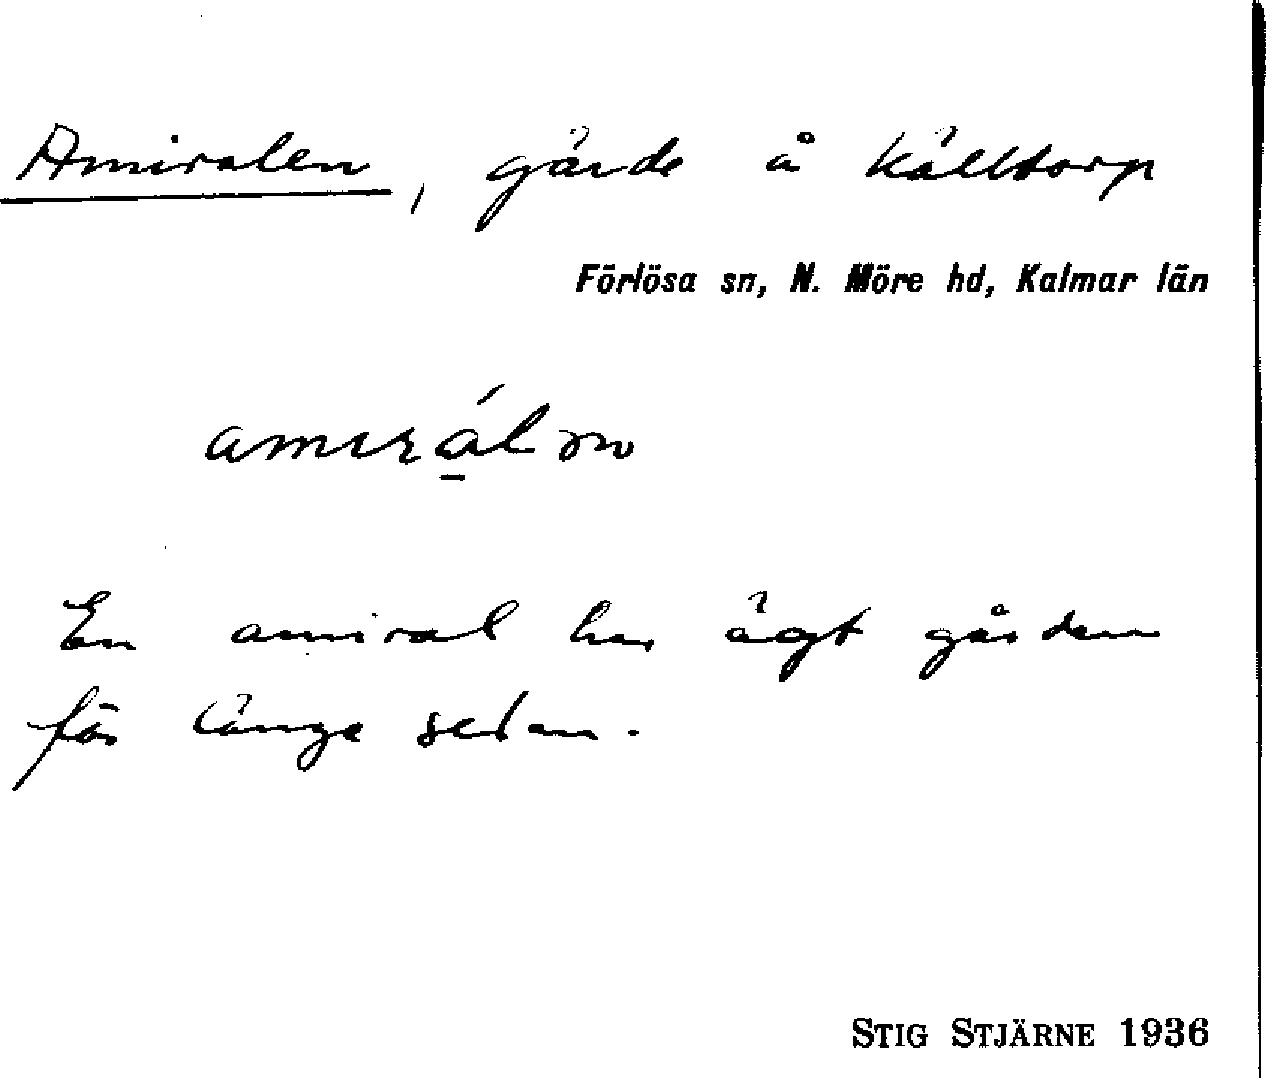 Amiralen, gärde å Källtorp
Förlösa sn, N. Möre hd, Kalmar län
amɪrálən
En amiral har ägt gården
för länge sedan.
STIG STJÄRNE 1936